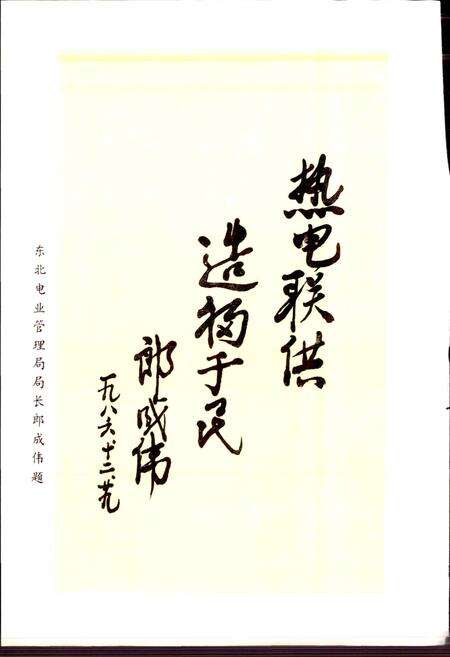 热电联供
造福于民
郎成伟
一九八六.十二.廿九
东北电业管理局局长郎成伟题